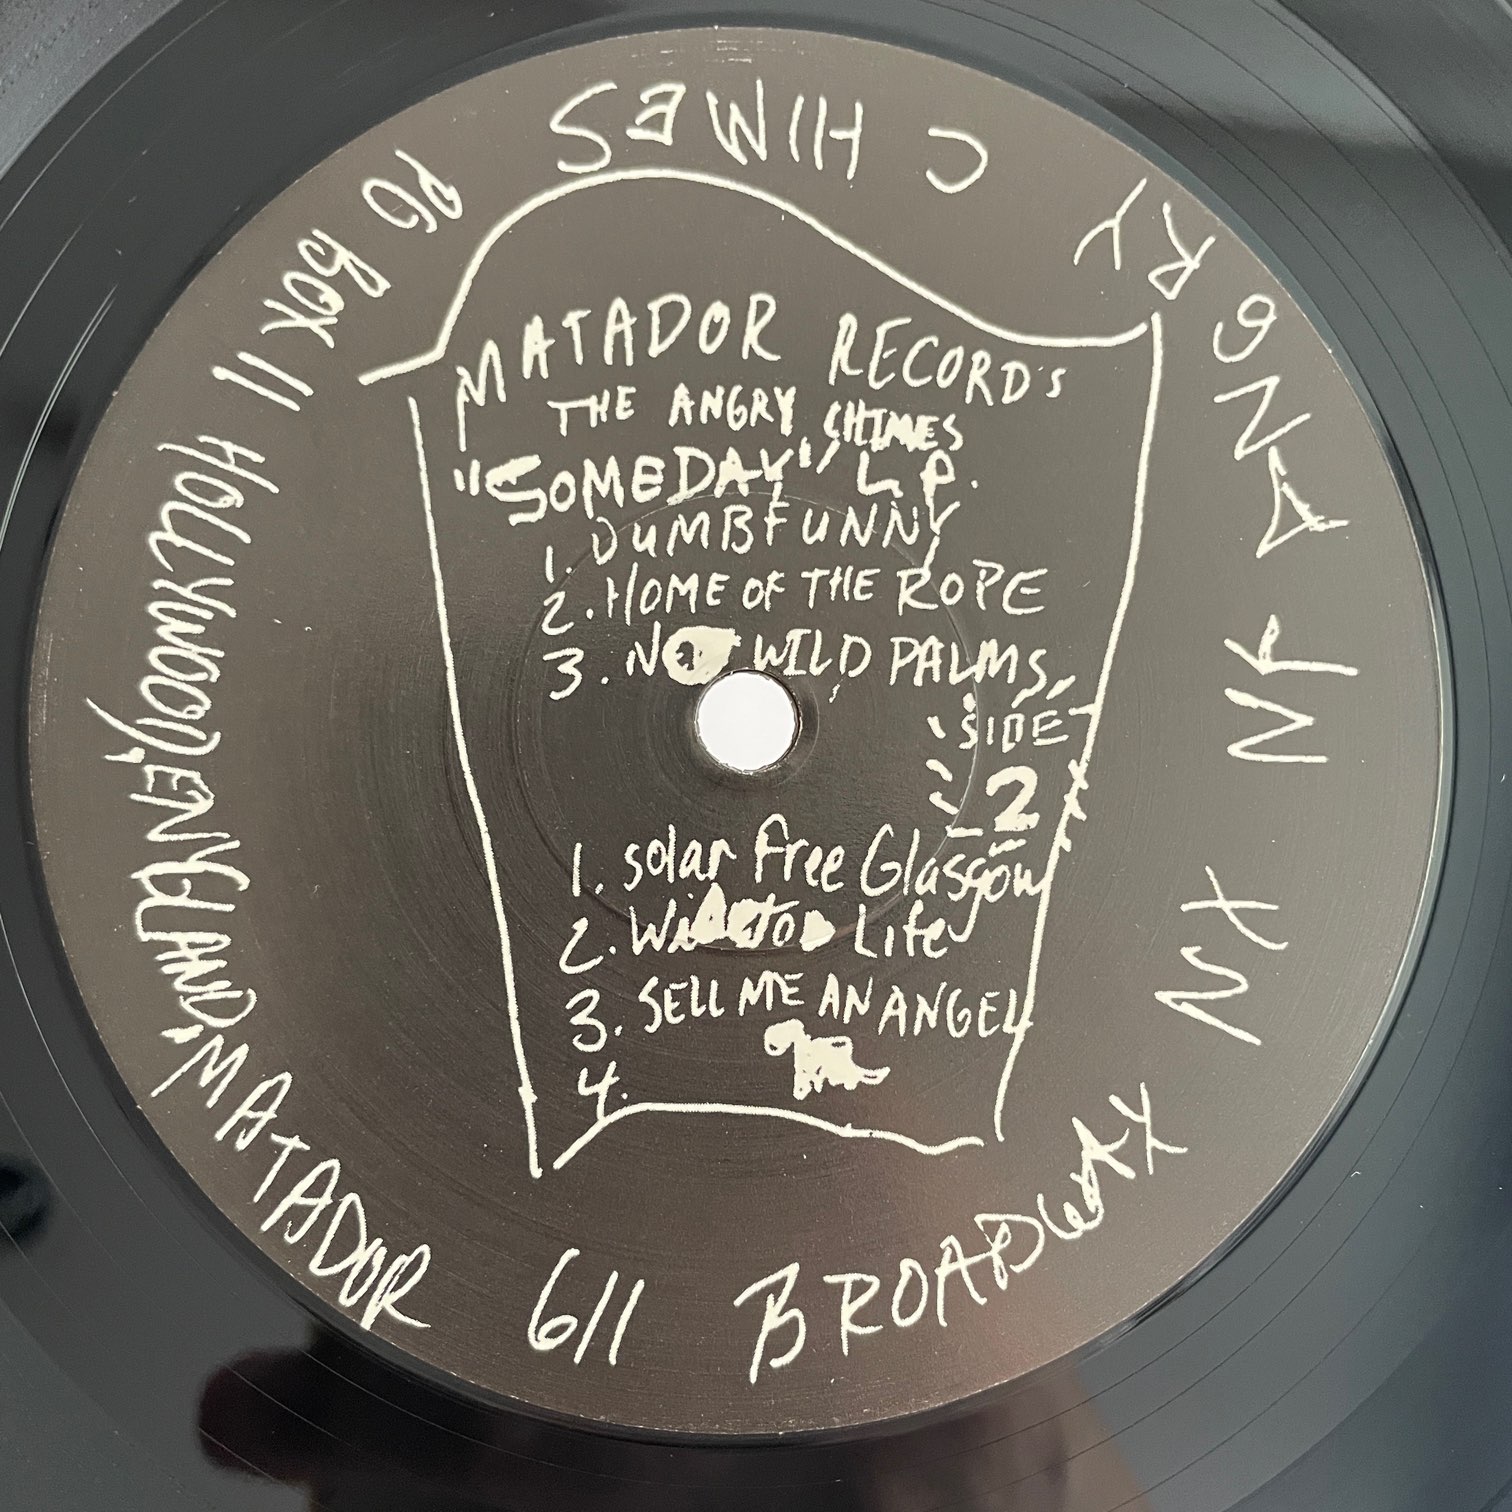 MATADOR RECORD'S
THE ANGRY CHIMES
"SOMEDAY" L.P.
1. DUMBFUNNY
2. HOME OF THE ROPE
3. WILD PALMS
SIDE
2
1. solar free Glasgow
2. Life
3. SELL ME AN ANGEL
4.
PO BOX 11 HOLLYWOOD, ENGLAND, MATADOR 611 BROADWAY NY NY ANGRY CHIMES